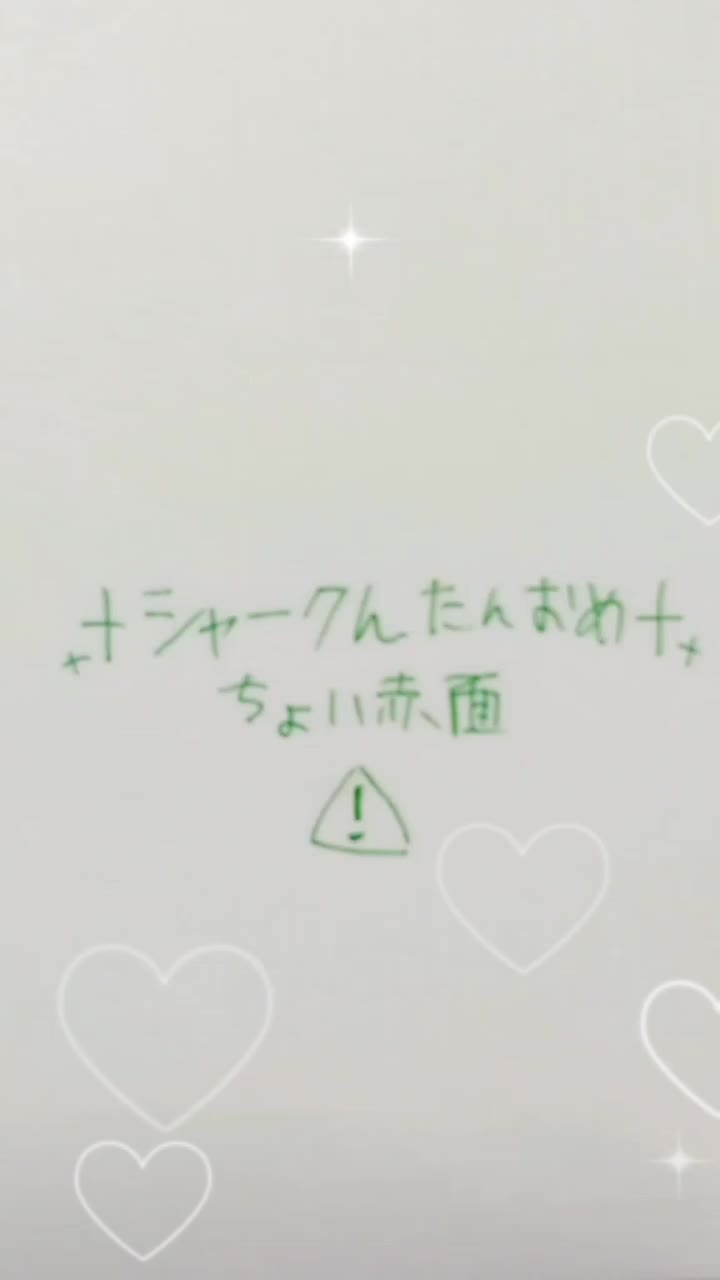 シャークんたんおめ
ちょい赤面
!